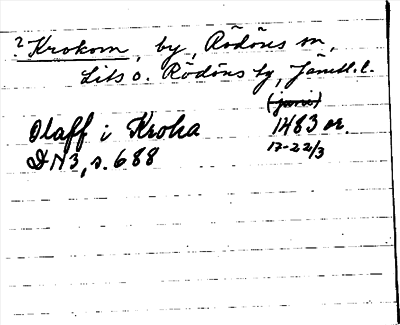 ? Krokom, by, Rödöns sn,
Lits o. Rödöns tg, Jämtl. l.
(juni)
Olaff i Kroka 1483 or.
DN3, s. 688 17-22/3